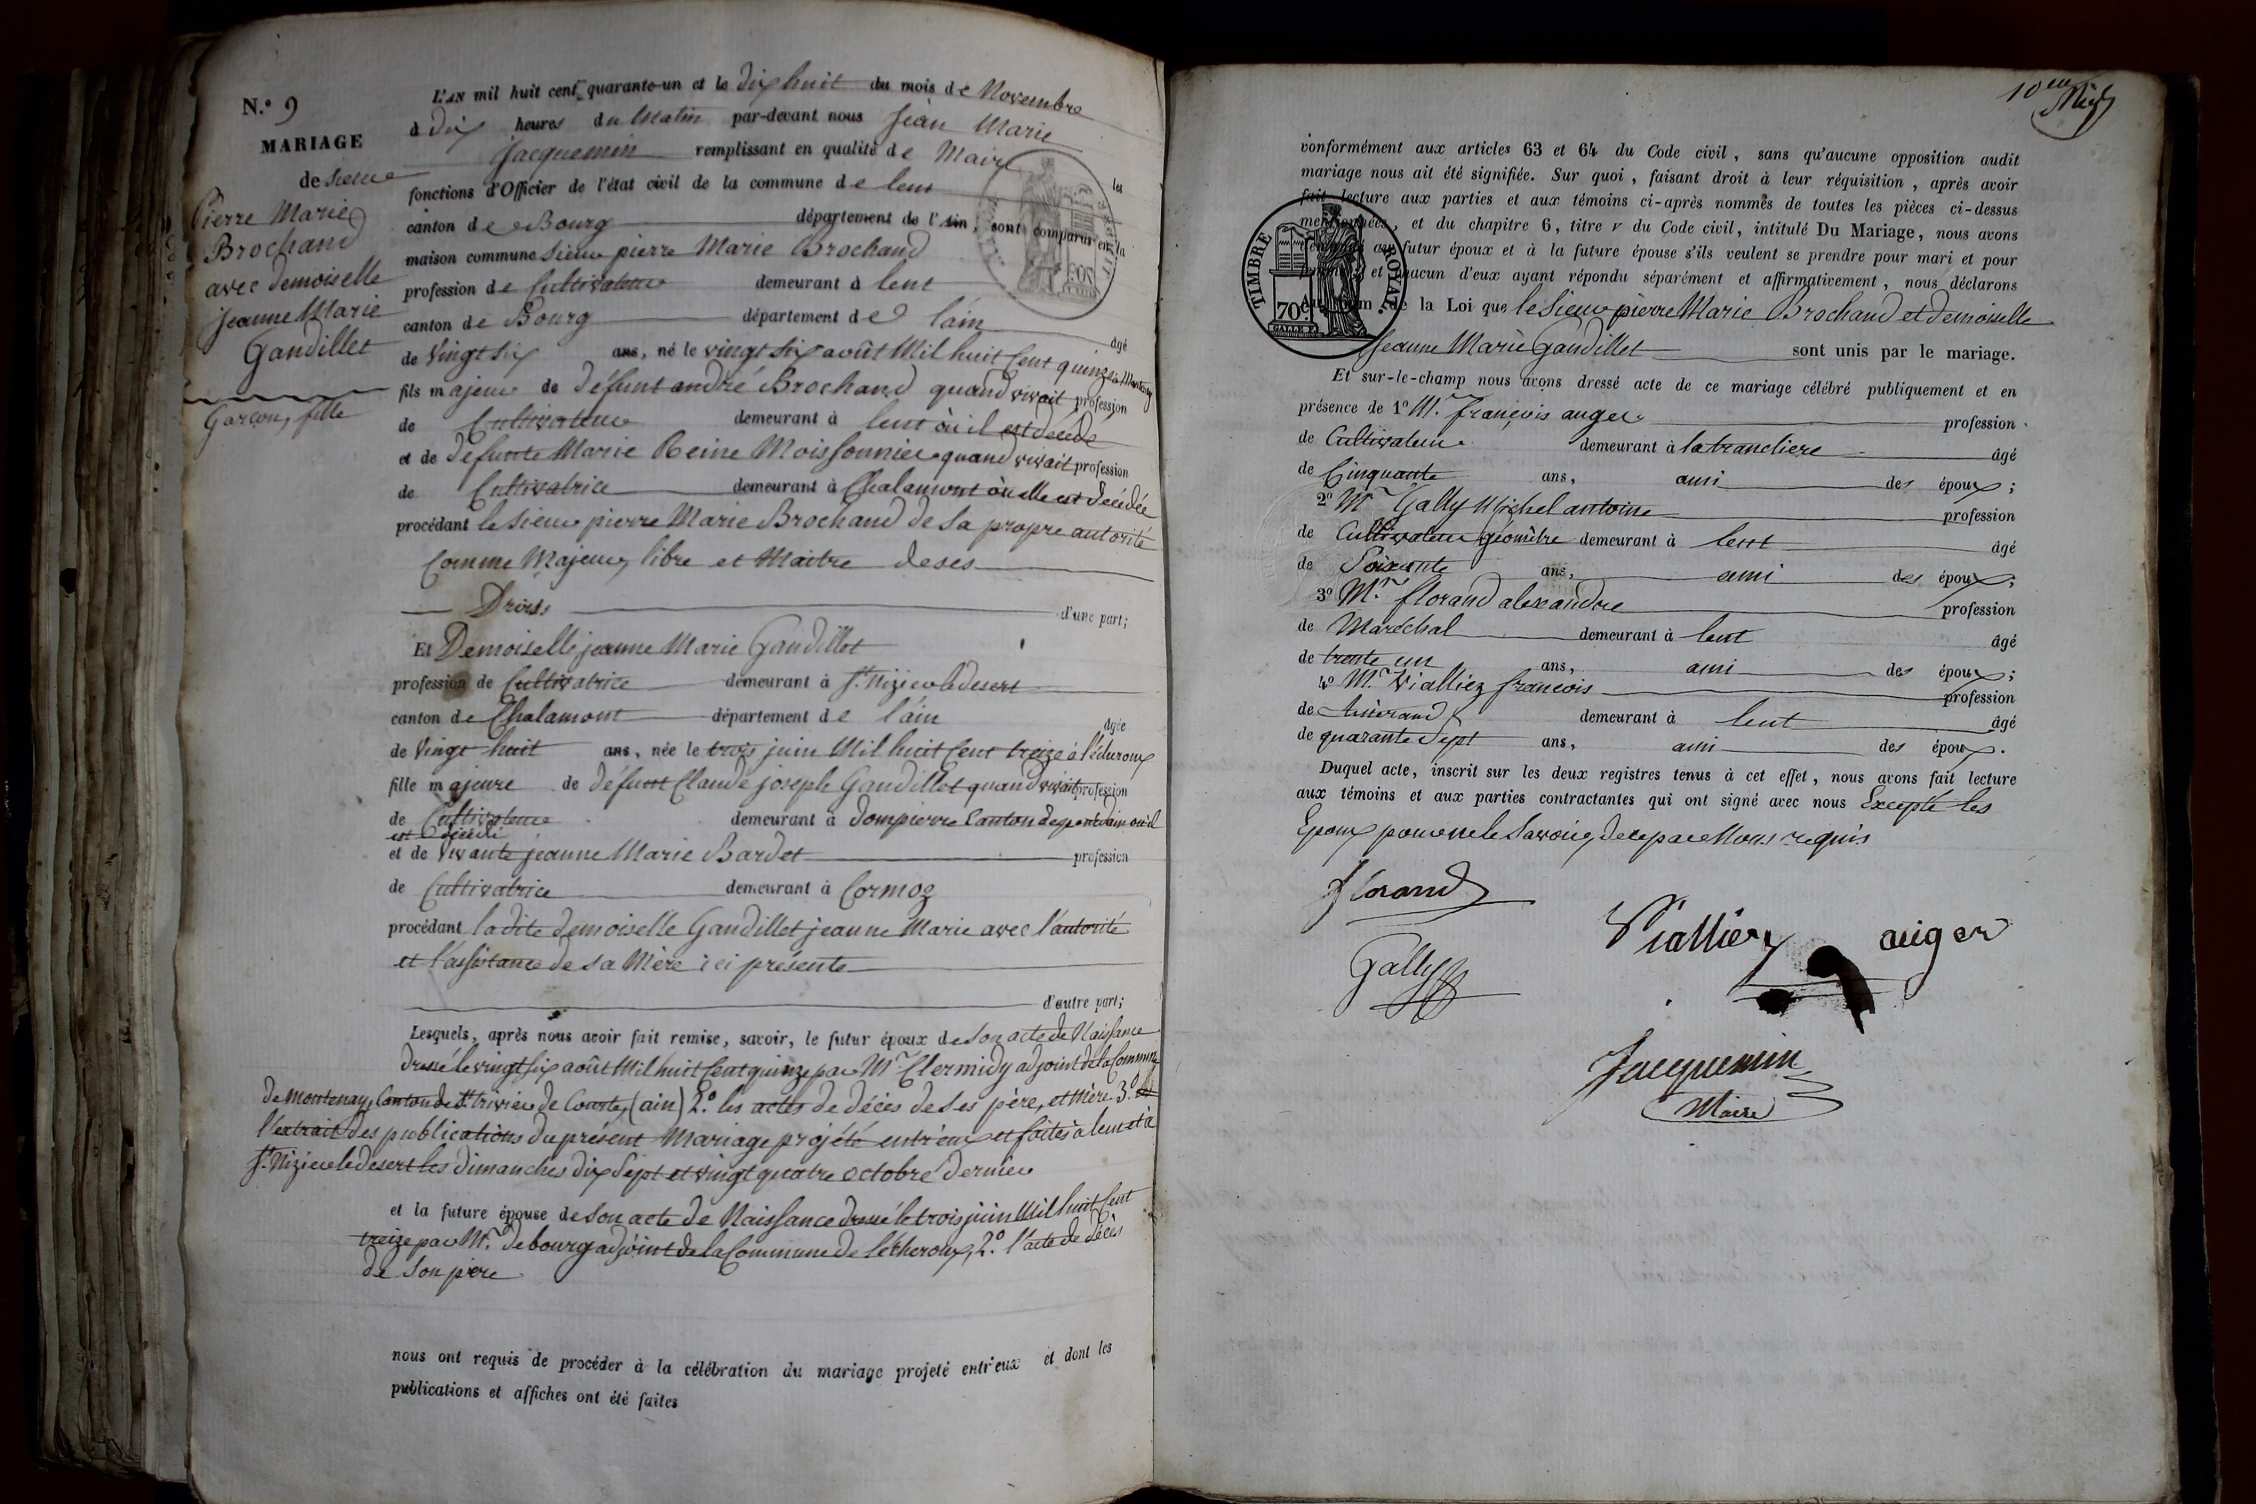 N.º 9
MARIAGE
de Sieur
Pierre Marie
Brochand
avec demoiselle
Jeanne Marie
Gandillet
Garçon, fille
L'AN mil huit cent quarante-un et le dix huit du mois de Novembre
à dix heures du Matin par-devant nous Jean Marie
Jacquemin remplissant en qualité de Maire les
fonctions d'Officier de l'état civil de la commune de lent
canton de Bourg département de l'Ain, sont comparus en la
maison commune Sieur pierre Marie Brochand
profession de Cultivateur demeurant à lent
canton de Bourg département de l'ain âgé
de Vingt Six ans, né le vingt Six août Mil huit Cent quinze à Montenay
fils majeur de défunt andré Brochand quand vivait profession
de Cultivateur demeurant à lent où il est décédé
et de défunte Marie Reine Moissonnier quand vivait profession
de Cultivatrice demeurant à Chalamont où elle est décédée
procédant le Sieur pierre Marie Brochand de Sa propre autorité
Comme Majeur, libre et Maitre de ses
Droits d'une part;
Et Demoiselle jeanne Marie Gandillet
profession de Cultivatrice demeurant à St. Nizier le desert
canton de Chalamont département de l'ain âgée
de Vingt huit ans, née le trois juin Mil huit Cent treize à l'éduroux
fille majeure de défunt Claude joseph Gandillet quand vivait profession
de Cultivateur demeurant à dompierre Canton de pontdain où il
est décédé
et de Vivante jeanne Marie Bardet profession
de Cultivatrice demeurant à Cormoz
procédant la dite demoiselle Gandillet jeanne Marie avec l'autorité
et l'assistance de sa Mère ici présente
d'autre part;
Lesquels, après nous avoir fait remise, savoir, le futur époux de son acte de Naissance
dressé le vingt Six août Mil huit Cent quinze par Mr. Clermidy adjoint de la Commune
de Montenay, Canton de St. trivier de Courte, (ain) 2.º les actes de décès de Ses père, et Mère. 3.º
l'extrait des publications du présent Mariage projeté entr'eux et faites à lent et à
St. Nizier le desert les dimanches dix Sept et vingt quatre octobre dernier
et la future épouse de son acte de Naissance dressé le trois juin Mil huit Cent
treize par Mr. debourg adjoint de la Commune de létheroux, 2.º l'acte de décès
de Son père
nous ont requis de procéder à la célébration du mariage projeté entr'eux et dont les
publications et affiches ont été faites
10me
conformément aux articles 63 et 64 du Code civil, sans qu'aucune opposition audit
mariage nous ait été signifiée. Sur quoi, faisant droit à leur réquisition, après avoir
fait lecture aux parties et aux témoins ci-après nommés de toutes les pièces ci-dessus
mentionnées, et du chapitre 6, titre v du Code civil, intitulé Du Mariage, nous avons
demandé au futur époux et à la future épouse s'ils veulent se prendre pour mari et pour
femme; et chacun d'eux ayant répondu séparément et affirmativement, nous déclarons
au nom de la Loi que le Sieur pierre Marie Brochand et demoiselle
Jeanne Marie Gandillet sont unis par le mariage.
TIMBRE ROYAL
70c.
Et sur-le-champ nous avons dressé acte de ce mariage célébré publiquement et en
présence de 1º Mr. françois auger profession
de Cultivateur demeurant à la trancliere âgé
de Cinquante ans, ami des époux;
2º Mr Gally Michel antoine profession
de Cultivateur géomètre demeurant à lent âgé
de Soixante ans, ami des époux;
3º Mr. florand alexandre profession
de Maréchal demeurant à lent âgé
de trente un ans, ami des époux;
4º Mr. Vialliez françois profession
de tisserand demeurant à lent âgé
de quarante Sept ans, ami des époux.
Duquel acte, inscrit sur les deux registres tenus à cet effet, nous avons fait lecture
aux témoins et aux parties contractantes qui ont signé avec nous Excepté les
Epoux pour ne le Savoir, de ce par Nous requis
florand
Vialliez auger
Gally
Jacquemin
Maire